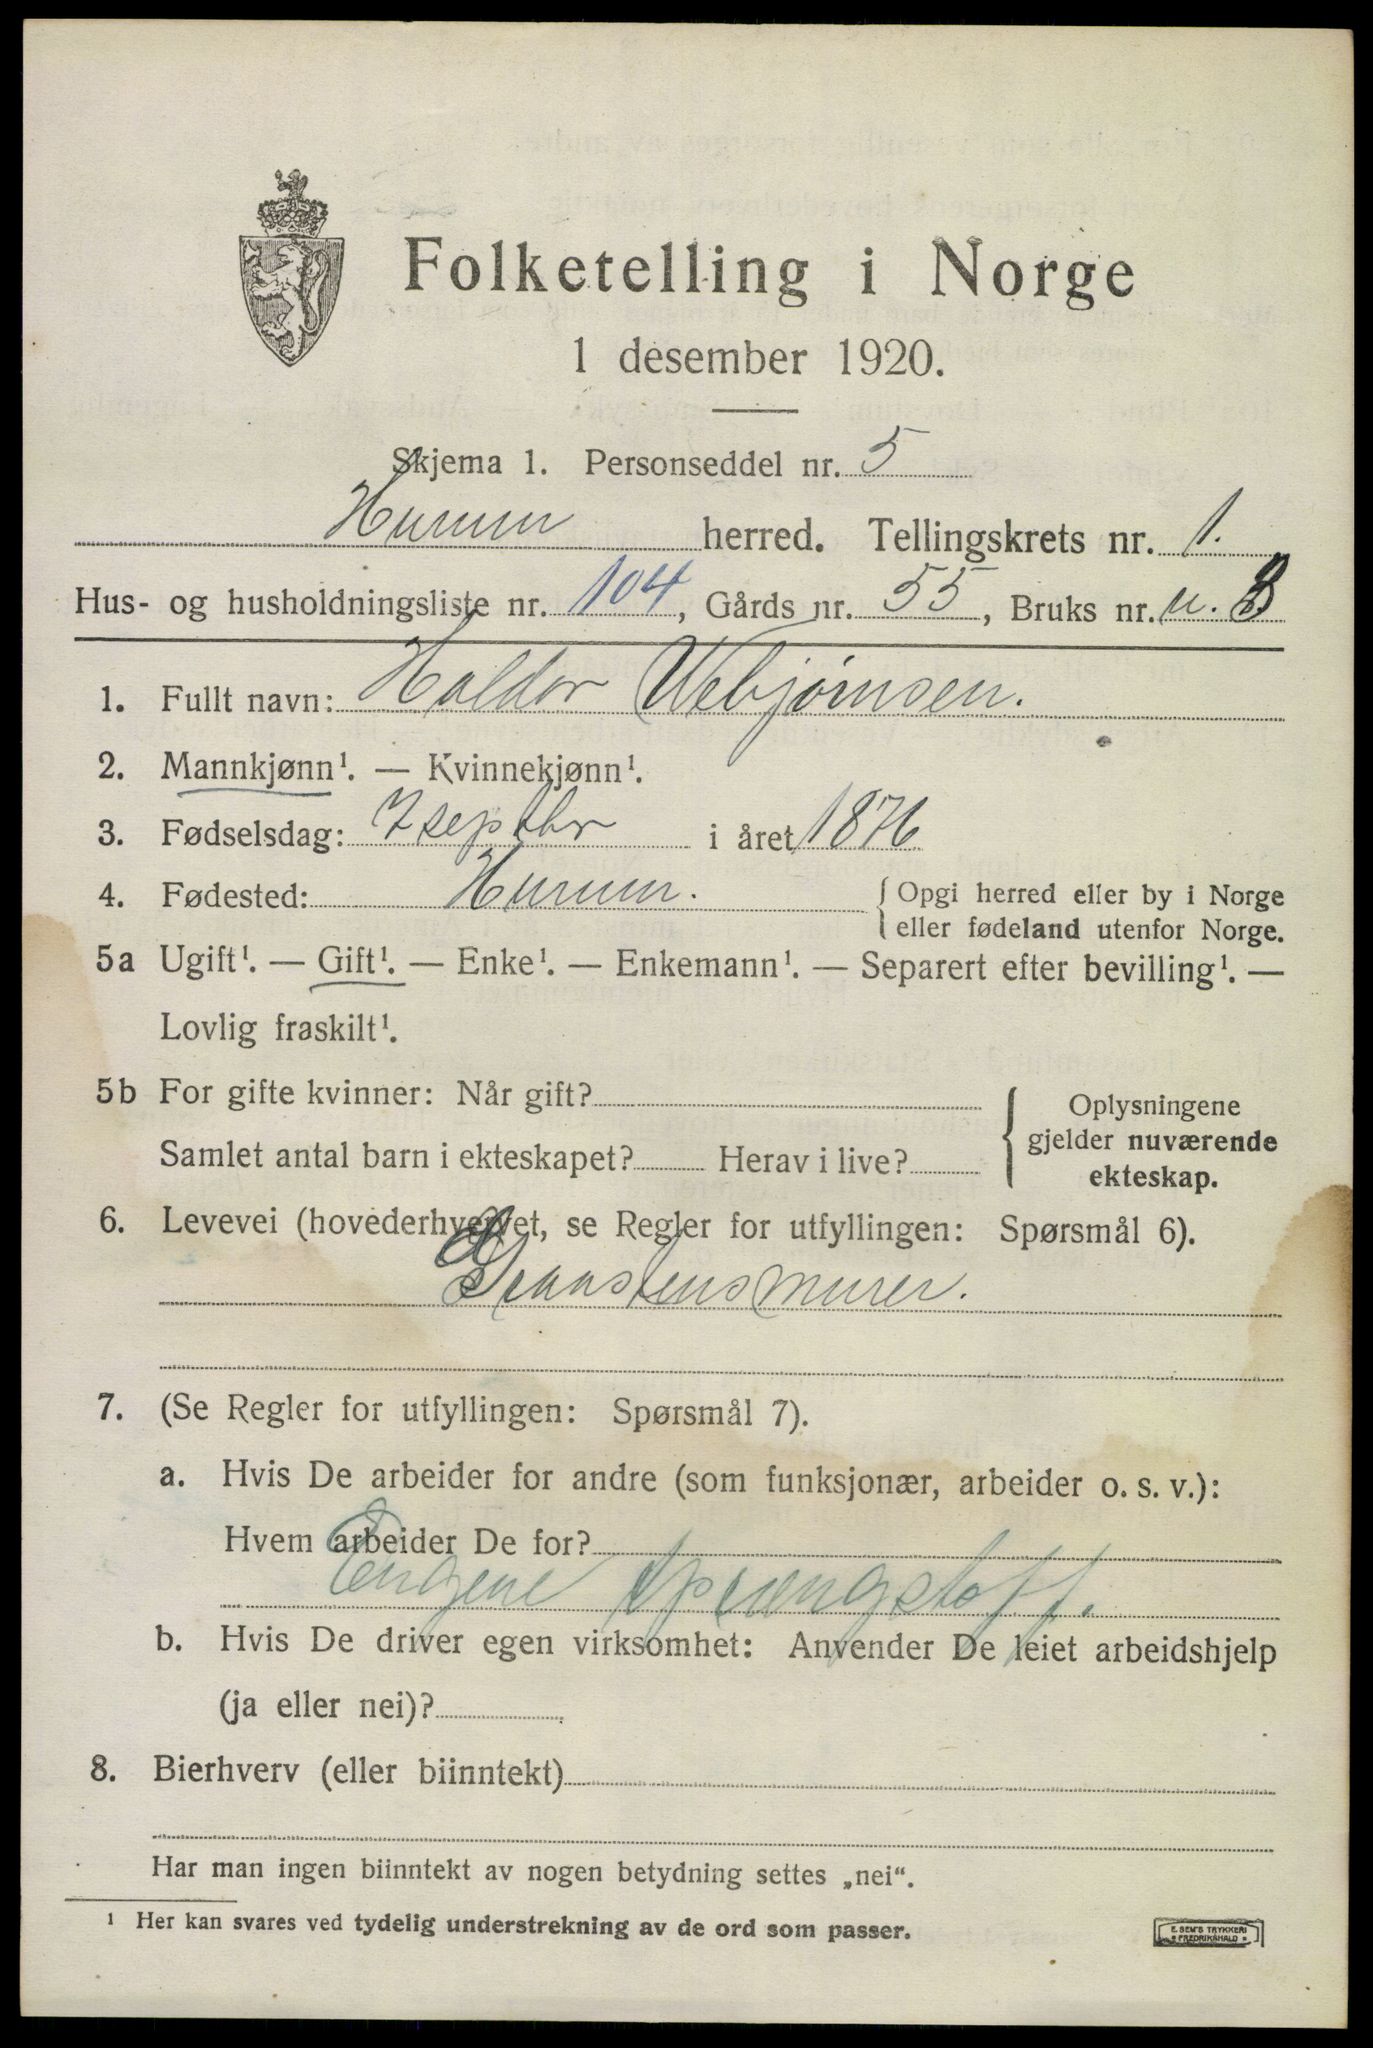 Folketelling i Norge
1 desember 1920.
Skjema 1. Personseddel nr. 5
Hurum herred. Tellingskrets nr. 1.
Hus- og husholdningsliste nr. 104, Gårds nr. 55, Bruks nr. u. B
1. Fullt navn: Haldor Vebjørnsen.
2. Mannkjønn¹. — Kvinnekjønn¹.
3. Fødselsdag: 7 septbr i året 1876
4. Fødested: Hurum. { Opgi herred eller by i Norge
eller fødeland utenfor Norge.
5a Ugift¹. — Gift¹. — Enke¹. — Enkemann¹. — Separert efter bevilling¹. —
Lovlig fraskilt¹.
5b For gifte kvinner: Når gift?
Samlet antal barn i ekteskapet? Herav i live?
Oplysningene
gjelder nuværende
ekteskap.
6. Levevei (hovederhvervet, se Regler for utfyllingen: Spørsmål 6).
Graastensmurer.
7. (Se Regler for utfyllingen: Spørsmål 7).
a. Hvis De arbeider for andre (som funksjonær, arbeider o. s. v.):
Hvem arbeider De for?
Engene sprængstoff.
b. Hvis De driver egen virksomhet: Anvender De leiet arbeidshjelp
(ja eller nei)?
8. Bierhverv (eller biinntekt)
Har man ingen biinntekt av nogen betydning settes „nei“.
¹ Her kan svares ved tydelig understrekning av de ord som passer.
E. SEM'S TRYKKERI
FREDRIKSHALD